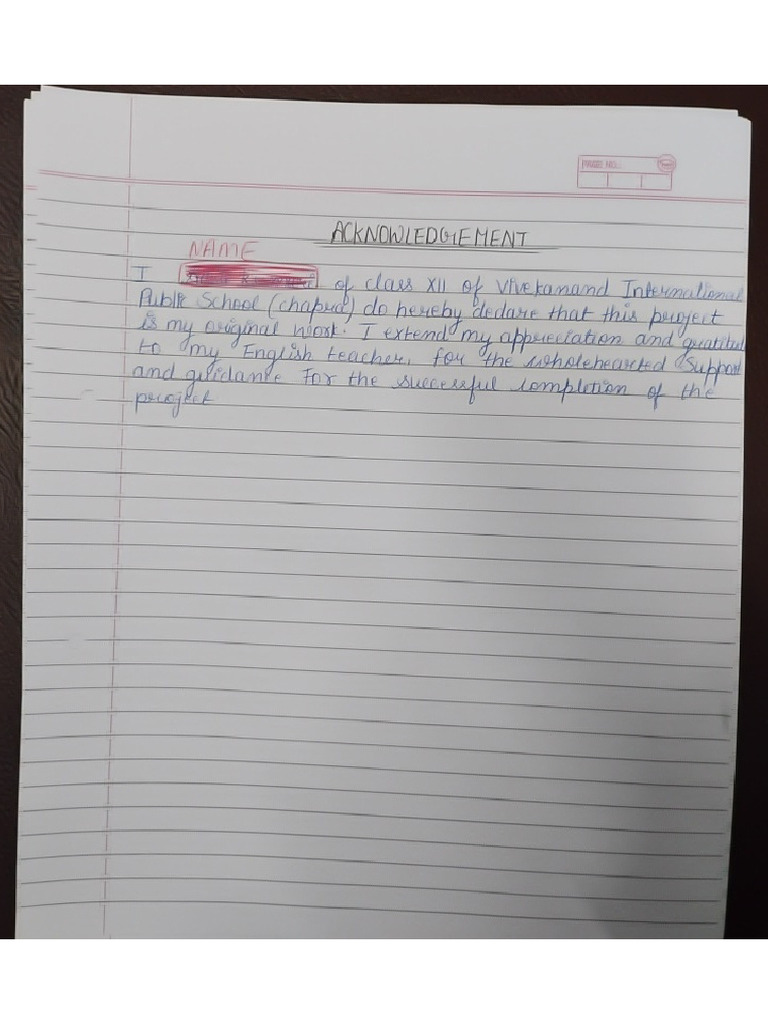 PAGE NO.:
ACKNOWLEDGEMENT
NAME
I of class XII of Vivekanand International
Public School (chapra) do hereby declare that this project
is my original work. I extend my appreciation and gratitud
to my English teacher, for the wholehearted support
and guidance for the successful completion of the
project